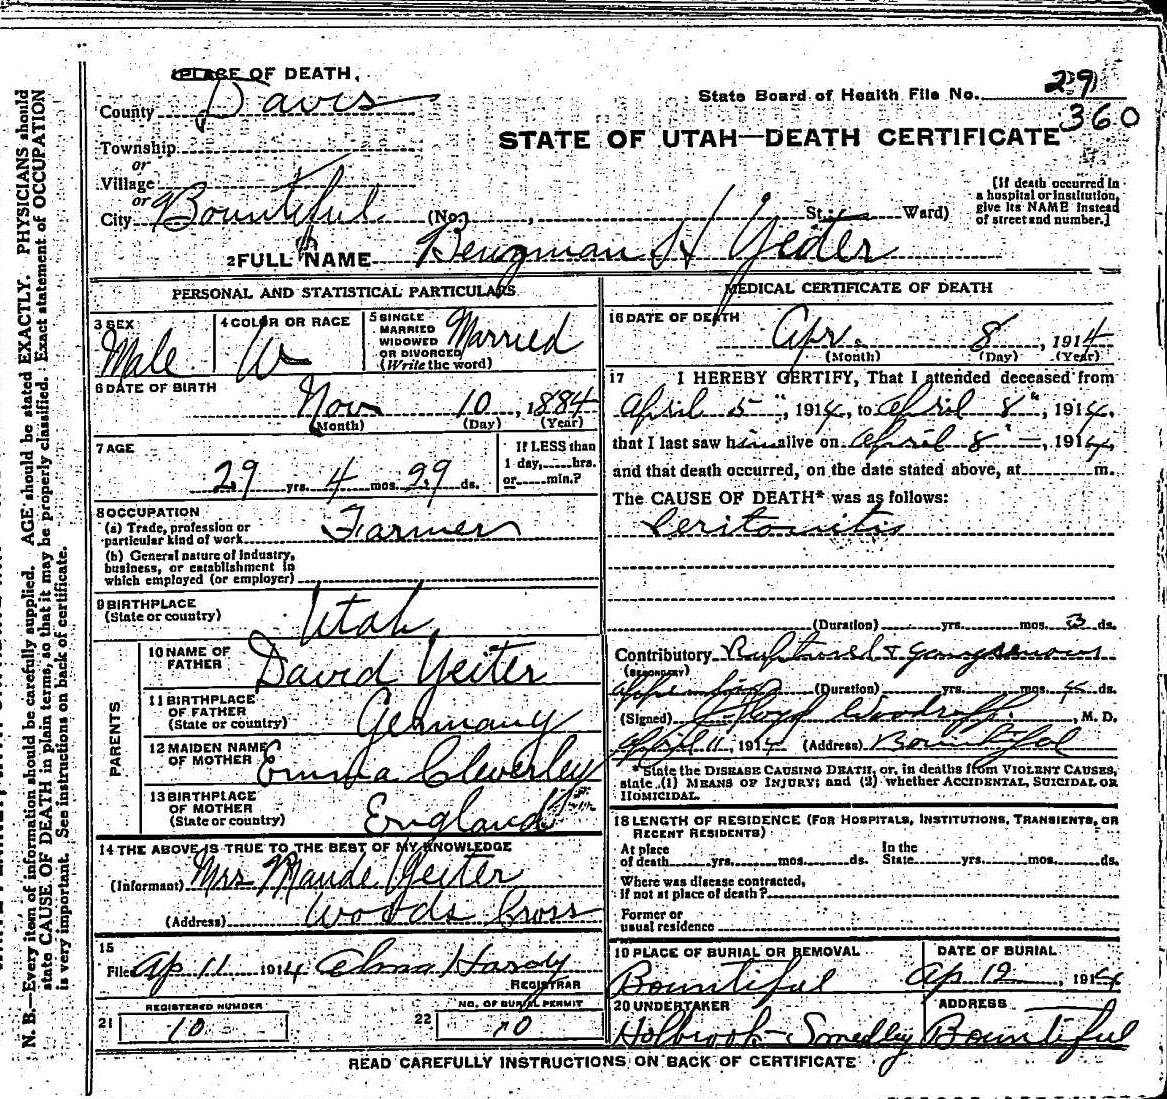 PLACE OF DEATH,
County Davis
State Board of Health File No. 29
360
STATE OF UTAH—DEATH CERTIFICATE
Township
or
Village
or
City Bountiful (No. , St.; Ward)
[If death occurred in
a hospital or institution,
give its NAME instead
of street and number.]
2 FULL NAME Bengman H Yeiter
PERSONAL AND STATISTICAL PARTICULARS
3 SEX
Male
4 COLOR OR RACE
W
5 SINGLE
MARRIED
WIDOWED
OR DIVORCED
(Write the word)
Married
6 DATE OF BIRTH
Nov 10, 1884
(Month) (Day) (Year)
7 AGE
29 yrs. 4 mos. 29 ds.
If LESS than
1 day,......hrs.
or......min.?
8 OCCUPATION
(a) Trade, profession or
particular kind of work Farmer
(b) General nature of industry,
business, or establishment in
which employed (or employer)
9 BIRTHPLACE
(State or country) Utah
PARENTS
10 NAME OF
FATHER David Yeiter
11 BIRTHPLACE
OF FATHER
(State or country) Germany
12 MAIDEN NAME
OF MOTHER Emma Cleverley
13 BIRTHPLACE
OF MOTHER
(State or country) England
14 THE ABOVE IS TRUE TO THE BEST OF MY KNOWLEDGE
(Informant) Mrs Maude Yeiter
(Address) Woods Cross
15
Filed Ap 11 1914 Alma Hardy
REGISTRAR
REGISTERED NUMBER
21 10
NO. OF BURIAL PERMIT
22 10
MEDICAL CERTIFICATE OF DEATH
16 DATE OF DEATH
Apr. 8, 1914
(Month) (Day) (Year)
17 I HEREBY CERTIFY, That I attended deceased from
April 5", 1914, to April 8", 1914,
that I last saw him alive on April 8"—, 1914,
and that death occurred, on the date stated above, at m.
The CAUSE OF DEATH* was as follows:
Peritonitis
(Duration) yrs. mos. 3 ds.
Contributory Ruptured & gangrenous
(SECONDARY)
appendix (Duration) yrs. mos. 4 ds.
(Signed) Lloyd Woodruff, M. D.
April 11, 1914 (Address) Bountiful
*State the DISEASE CAUSING DEATH, or, in deaths from VIOLENT CAUSES,
state (1) MEANS OF INJURY; and (2) whether ACCIDENTAL, SUICIDAL or
HOMICIDAL.
18 LENGTH OF RESIDENCE (FOR HOSPITALS, INSTITUTIONS, TRANSIENTS, OR
RECENT RESIDENTS)
At place In the
of death yrs. mos. ds. State yrs. mos. ds.
Where was disease contracted,
if not at place of death?
Former or
usual residence
19 PLACE OF BURIAL OR REMOVAL
Bountiful
DATE OF BURIAL
Ap 12, 1914
20 UNDERTAKER
Holbrook-Smedley
ADDRESS
Bountiful
READ CAREFULLY INSTRUCTIONS ON BACK OF CERTIFICATE
N. B.—Every item of information should be carefully supplied. AGE should be stated EXACTLY. PHYSICIANS should
state CAUSE OF DEATH in plain terms, so that it may be properly classified. Exact statement of OCCUPATION
is very important. See instructions on back of certificate.